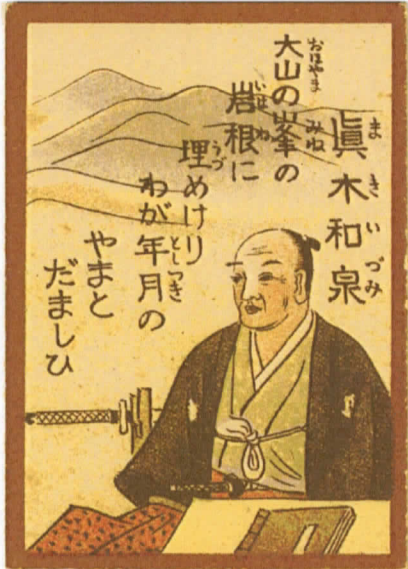 眞木和泉
まきいづみ
大山の峯の
おほやまみね
岩根に
いはね
埋めけり
うづ
わが年月の
としつき
やまと
だましひ